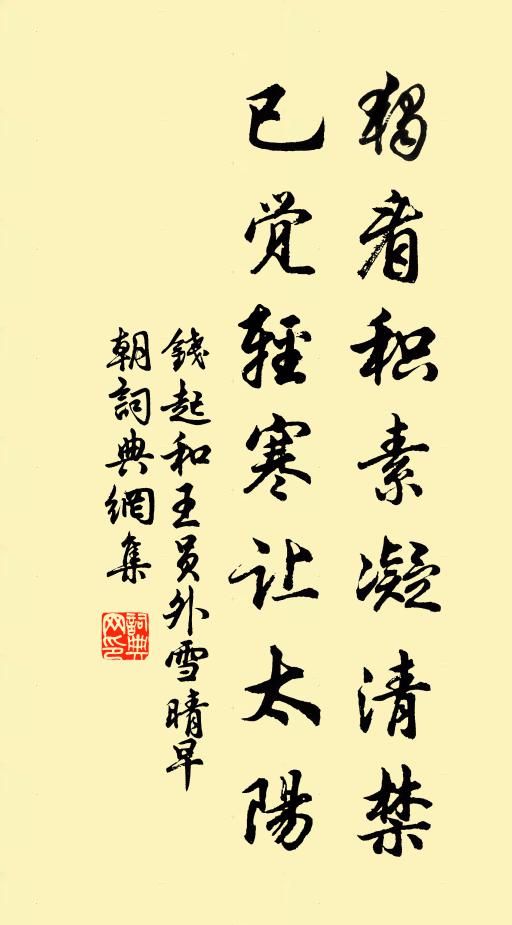 獨看积素凝清禁
已觉輕寒让太陽
錢起和王员外雪晴早
朝詞典網集
詞典
网印